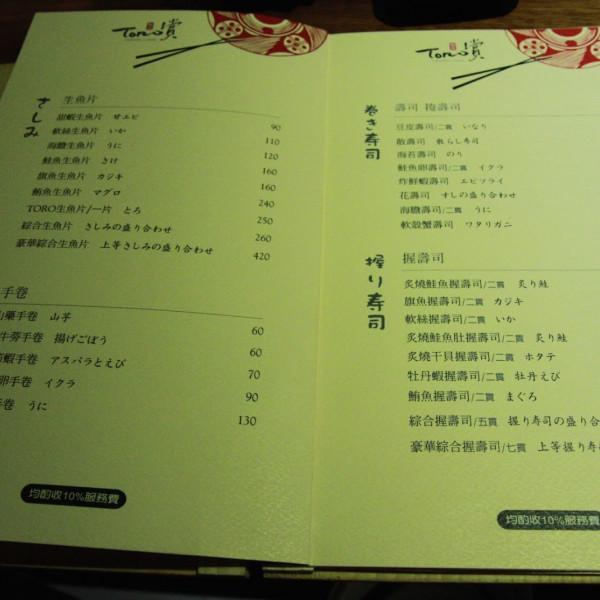 Toro賞
さしみ
生魚片
甜蝦生魚片 甘エビ 90
軟絲生魚片 いか 110
海膽生魚片 うに 120
鮭魚生魚片 さけ 160
旗魚生魚片 カジキ 160
鮪魚生魚片 マグロ 240
TORO生魚片/一片 とろ 250
綜合生魚片 さしみの盛り合わせ 260
豪華綜合生魚片 上等さしみの盛り合わせ 420
手卷
山藥手卷 山芋 60
牛蒡手卷 揚げごぼう 60
蝦手卷 アスパラとえび 70
卵手卷 イクラ 90
手卷 うに 130
均酌收10%服務費
Toro賞
巻き寿司
壽司 捲壽司
豆皮壽司/二貫 いなり
散壽司 散らし寿司
海苔壽司 のり
鮭魚卵壽司/二貫 イクラ
炸鮮蝦壽司 エビフライ
花壽司 すしの盛り合わせ
海膽壽司/二貫 うに
軟殼蟹壽司 ワタリガニ
握り寿司
握壽司
炙燒鮭魚握壽司/二貫 炙り鮭
旗魚握壽司/二貫 カジキ
軟絲握壽司/二貫 いか
炙燒鮭魚肚握壽司/二貫 炙り鮭
炙燒干貝握壽司/二貫 ホタテ
牡丹蝦握壽司/二貫 牡丹えび
鮪魚握壽司/二貫 まぐろ
綜合握壽司/五貫 握り寿司の盛り合
豪華綜合握壽司/七貫 上等握り寿
均酌收10%服務費